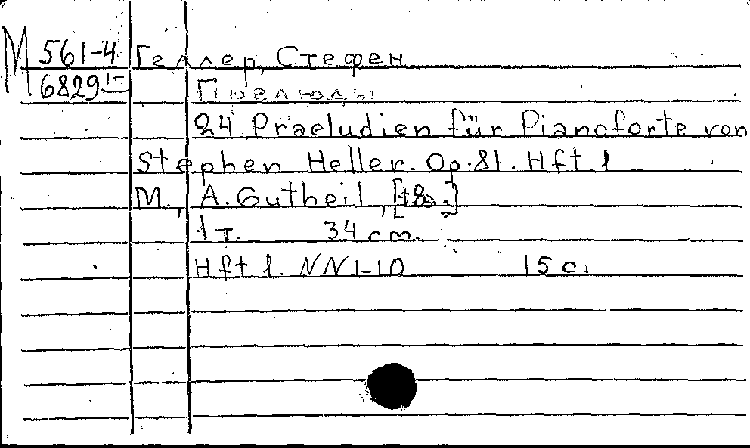 М 561-4 Геллер, Стефен
6829 1- Прелюды
24 Praeludien für Pianoforte von
Stephen Heller. Op. 81. Hft 1
М., A. Gutheil, [18 .]
1 т. 34 cm.
Hft 1. NN 1-10 15 c.